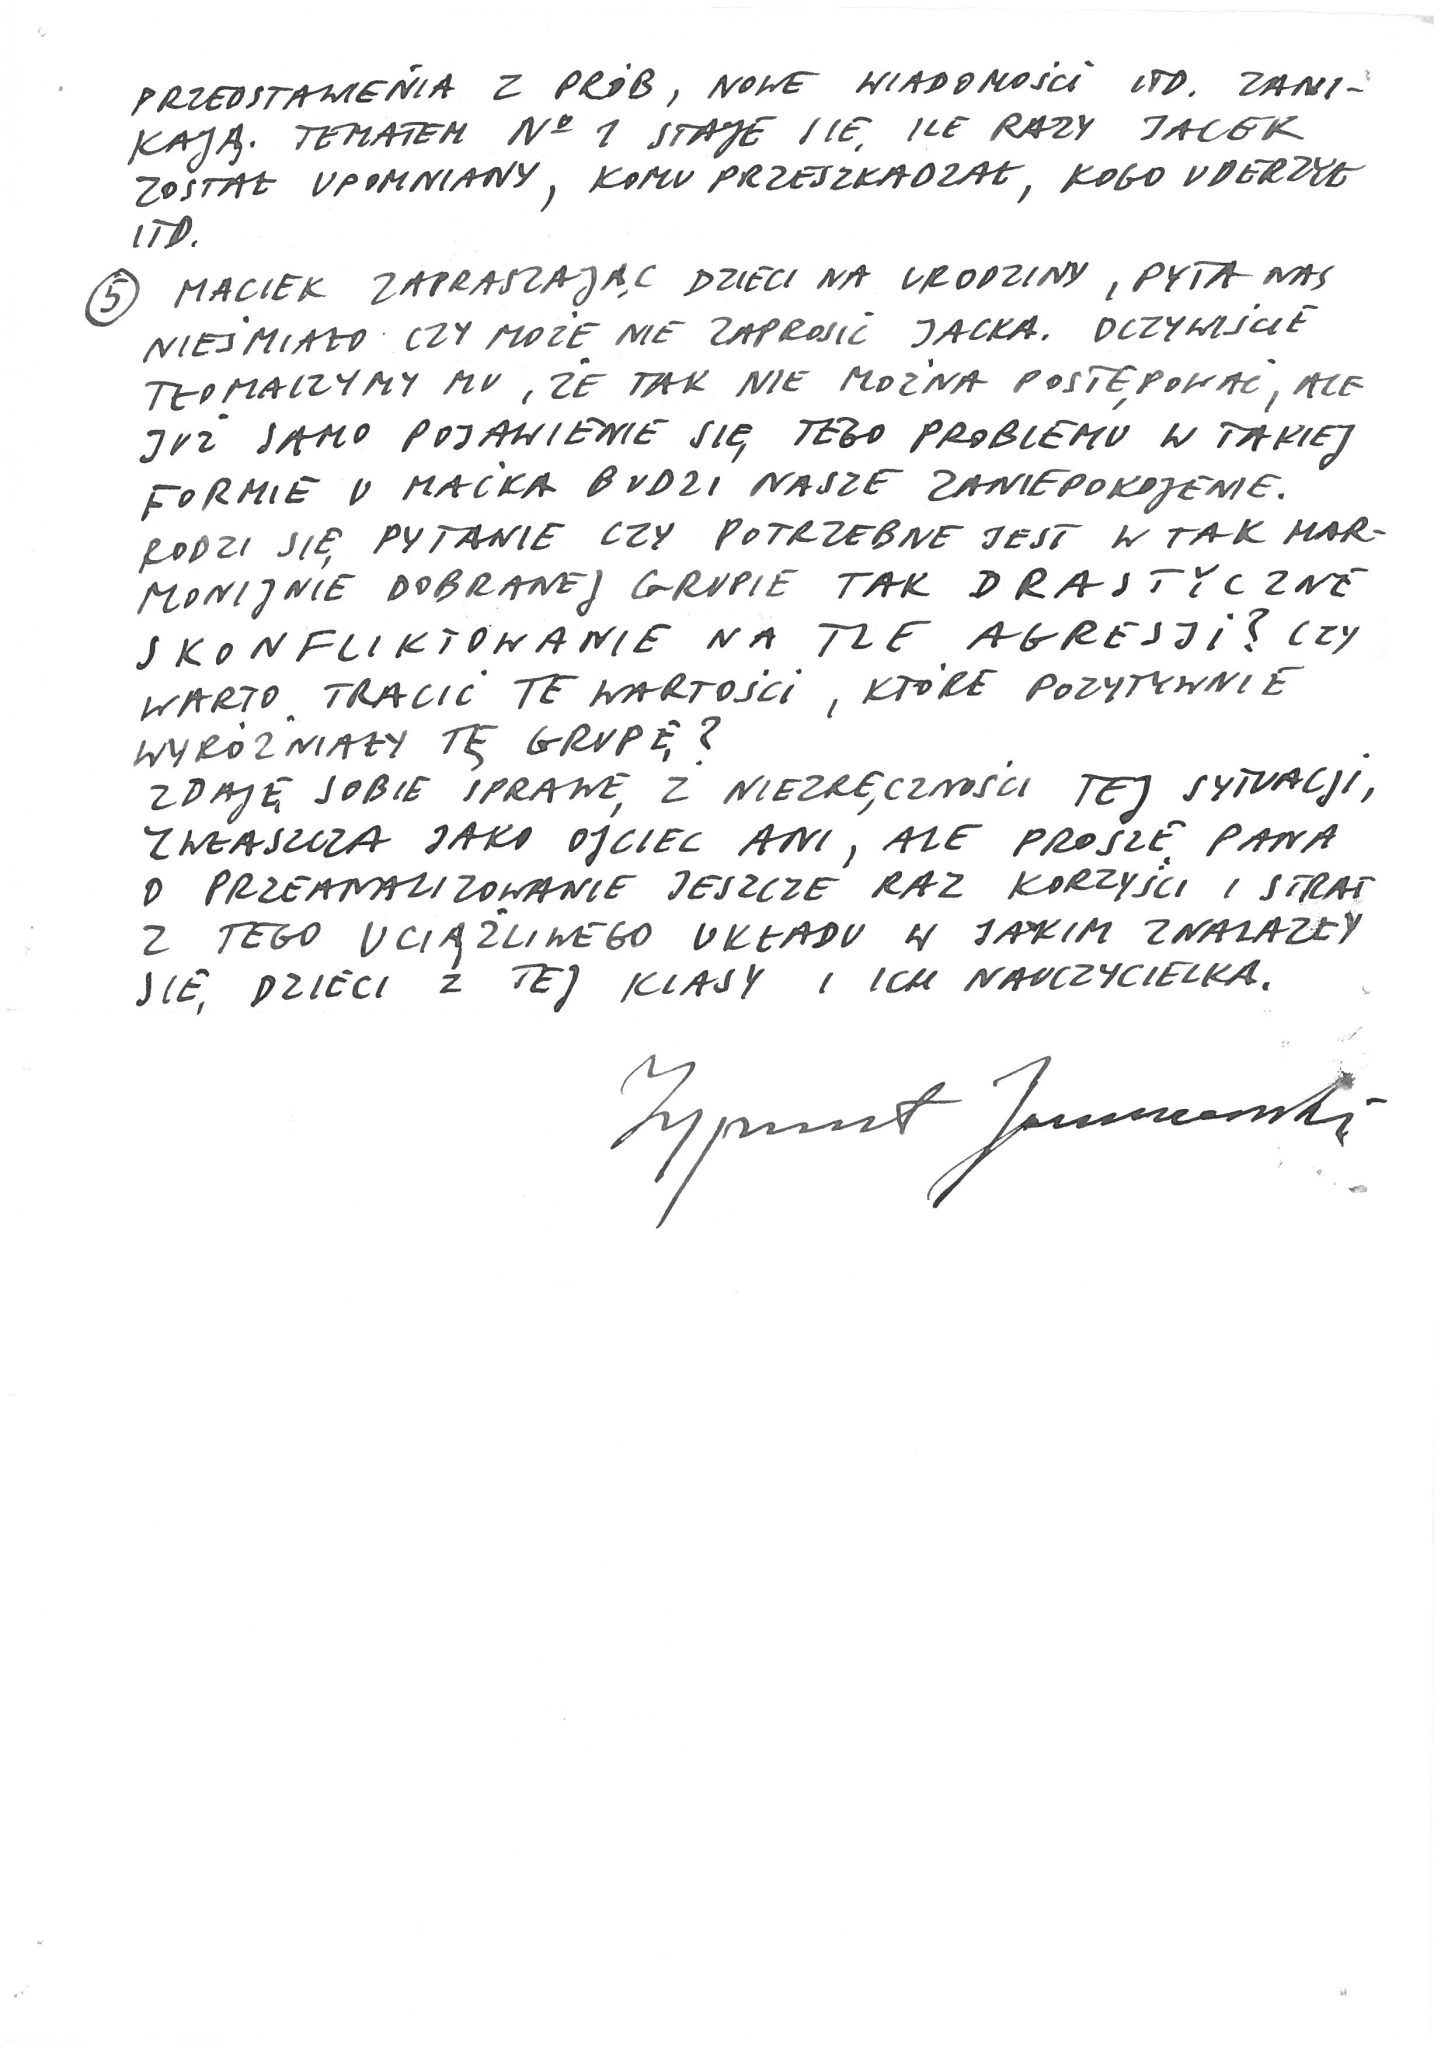 PRZEDSTAWIEŃIA Z PRÓB, NOWE WIADOMOŚCI ITD. ZANI-
KAJĄ. TEMATEM Nº 1 STAJE SIĘ, ILE RAZY JACEK
ZOSTAŁ UPOMNIANY, KOMU PRZESZKADZAŁ, KOGO UDERZYŁ
ITD.
⑤ MACIEK ZAPRASZAJĄC DZIECI NA URODZINY, PYTA NAS
NIEŚMIAŁO CZY MOŻE NIE ZAPROSIĆ JACKA. OCZYWIŚCIE
TŁOMACZYMY MU, ŻE TAK NIE MOŻNA POSTĘPOWAĆ, ALE
JUŻ SAMO POJAWIENIE SIĘ TEGO PROBLEMU W TAKIEJ
FORMIE U MAĆKA BUDZI NASZE ZANIEPOKOJENIE.
RODZI SIĘ PYTANIE CZY POTRZEBNE JEST W TAK HAR-
MONIJNIE DOBRANEJ GRUPIE TAK DRASTYCZNE
SKONFLIKTOWANIE NA TLE AGRESJI? CZY
WARTO TRACIĆ TE WARTOŚCI, KTÓRE POZYTYWNIE
WYRÓŻNIAŁY TĘ GRUPĘ?
ZDAJĘ SOBIE SPRAWĘ Z NIEZRĘCZNOŚCI TEJ SYTUACJI,
ZWŁASZCZA JAKO OJCIEC ANI, ALE PROSZĘ PANA
O PRZEANALIZOWANIE JESZCZE RAZ KORZYŚCI I STRAT
Z TEGO UCIĄŻLIWEGO UKŁADU W JAKIM ZNALAZŁY
SIĘ DZIECI Z TEJ KLASY I ICH NAUCZYCIELKA.
Zygmunt